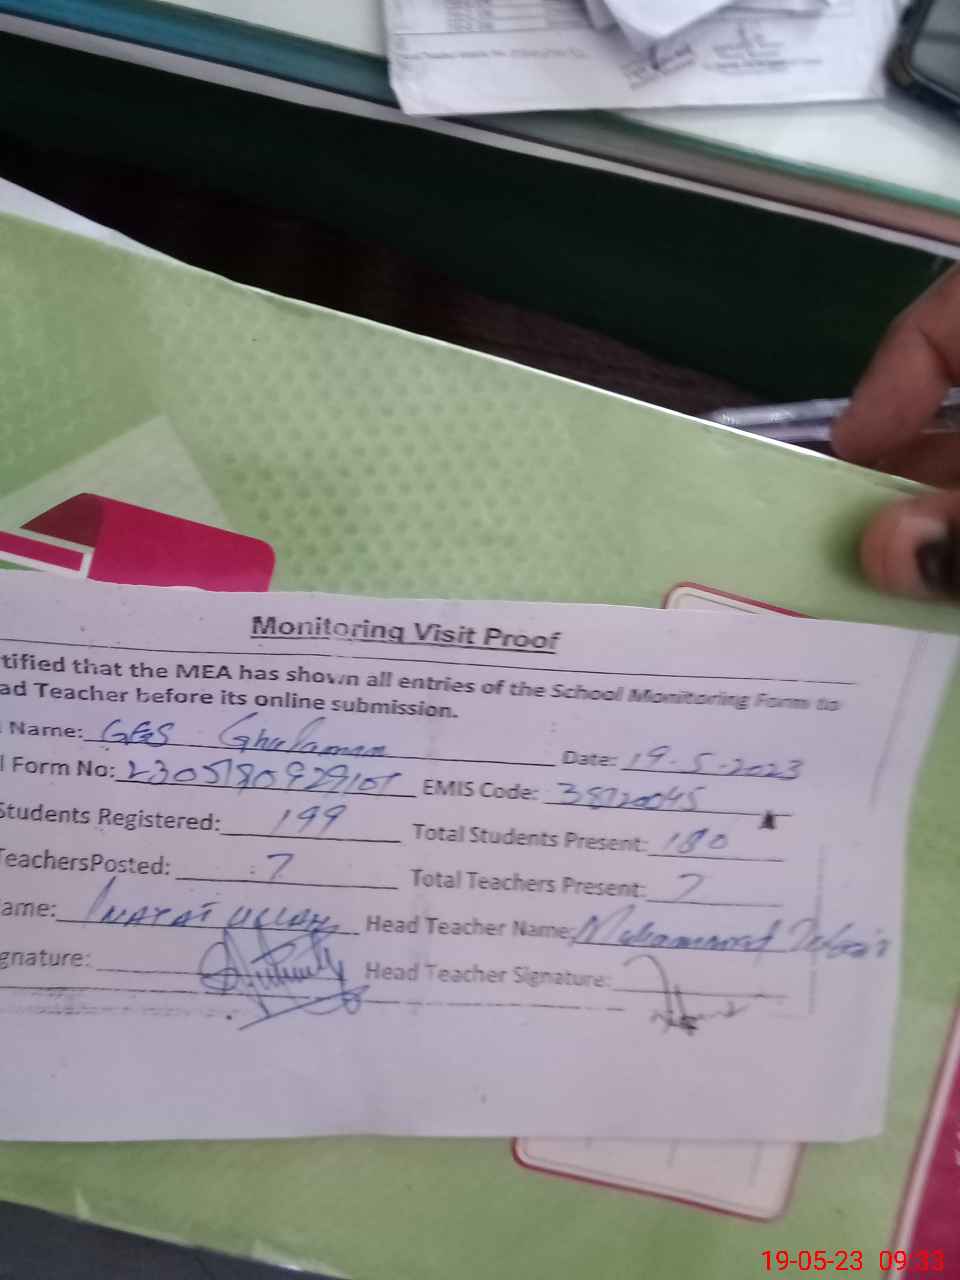 Monitoring Visit Proof
tified that the MEA has shown all entries of the School Monitoring Form to
ad Teacher before its online submission.
Name: GGS Ghulaman Date: 19-5-2023
l Form No: EMIS Code: 38720045
Students Registered: 199 Total Students Present: 180
TeachersPosted: 7 Total Teachers Present: 7
ame: INAYAT ULLAH Head Teacher Name: Muhammad
gnature: Head Teacher Signature:
19-05-23 09:33